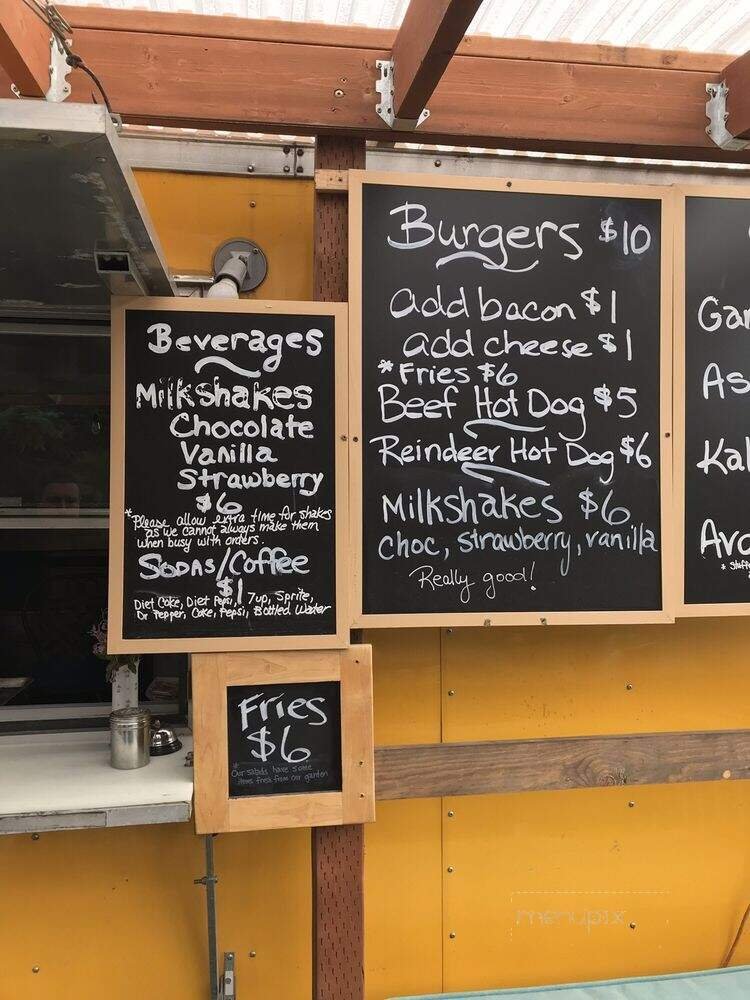 Beverages
Milkshakes
Chocolate
Vanilla
Strawberry
$6
*Please allow extra time for shakes
as we cannot always make them
when busy with orders.
Sodas/Coffee
$1
Diet Coke, Diet Pepsi, 7up, Sprite,
Dr Pepper, Coke, Pepsi, Bottled Water
Fries
$6
*Our salads have some
items fresh from our garden
Burgers $10
add bacon $1
add cheese $1
*Fries $6
Beef Hot Dog $5
Reindeer Hot Dog $6
Milkshakes $6
choc, strawberry, vanilla
Really good!
Gar
As
Kal
Avo
menupix